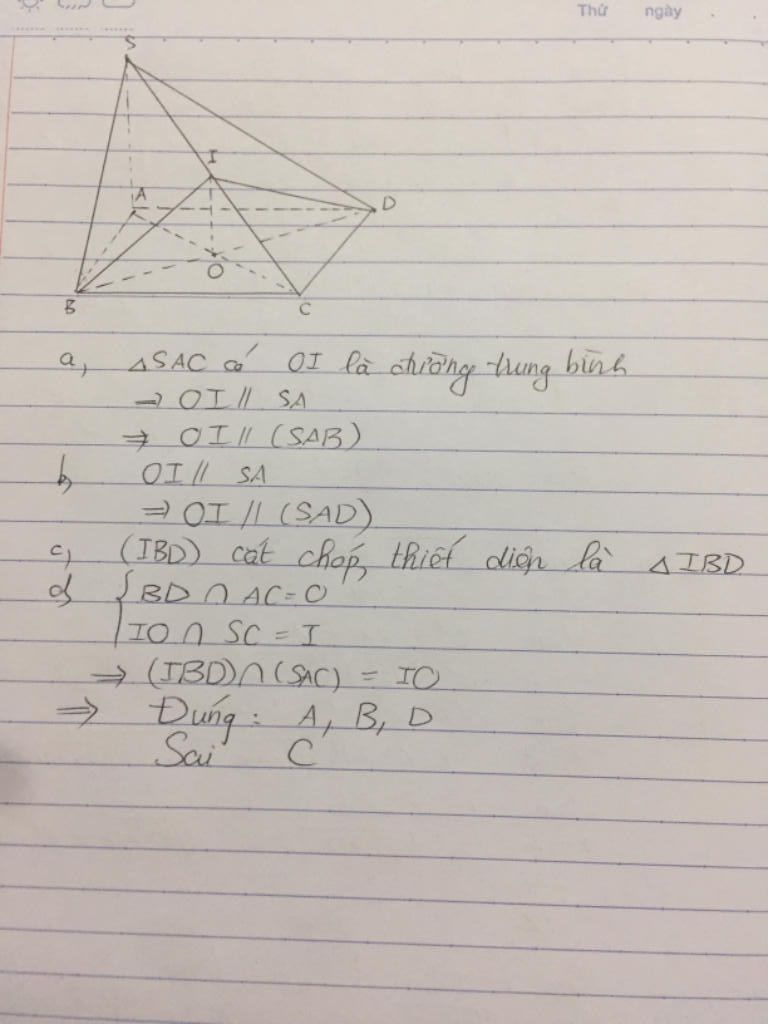 Thứ ngày
S
I
A
D
O
B
C
a, △SAC có OI là đường trung bình
⇒ OI // SA
⇒ OI // (SAB)
b, OI // SA
⇒ OI // (SAD)
c, (IBD) cắt chóp, thiết diện là △IBD
d, { BD ∩ AC = O
IO ∩ SC = I
⇒ (IBD) ∩ (SAC) = IO
⇒ Đúng: A, B, D
Sai C